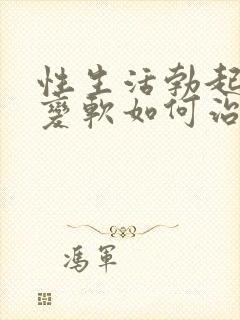 性生活勃起
变軟如何治
馮軍